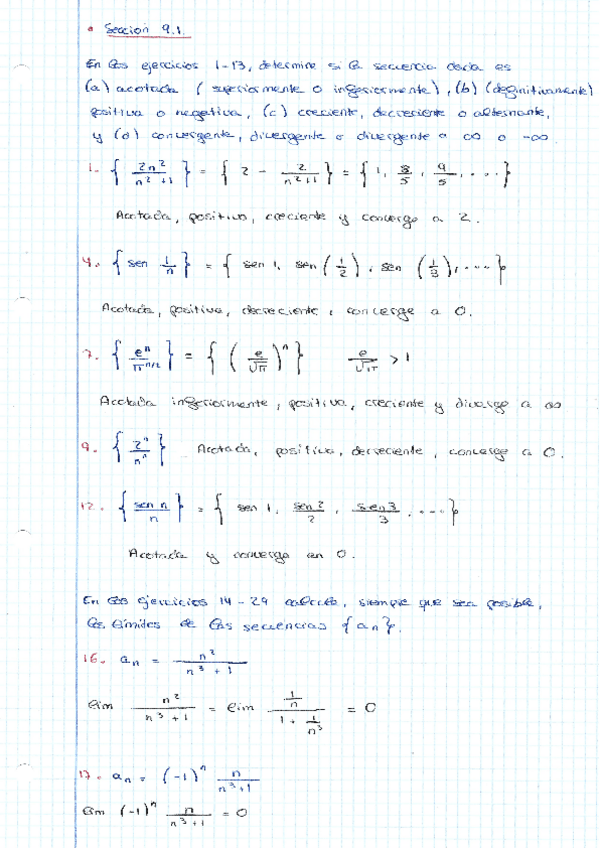 • Sección 9.1.
En los ejercicios 1-13, determine si la secuencia dada es
(a) acotada (superiormente o inferiormente), (b) (definitivamente)
positiva o negativa, (c) creciente, decreciente o alternante,
y (d) convergente, divergente o divergente a ∞ o -∞.
1. { 2n²/(n²+1) } = { 2 - 2/(n²+1) } = { 1, 8/5, 9/5, .... }
Acotada, positiva, creciente y converge a 2.
4. { sen 1/n } = { sen 1, sen (1/2), sen (1/3), .... }
Acotada, positiva, decreciente, converge a 0.
7. { eⁿ/π^(n/2) } = { (e/√π)ⁿ } e/√π > 1
Acotada inferiormente, positiva, creciente y diverge a ∞
9. { 2ⁿ/nⁿ } Acotada, positiva, decreciente, converge a 0.
12. { sen n/n } = { sen 1, sen 2/2, sen 3/3, .... }
Acotada y converge en 0.
En los ejercicios 14-29 calcule, siempre que sea posible,
los límites de las secuencias {aₙ}.
16. aₙ = n²/(n³+1)
lim n²/(n³+1) = lim (1/n)/(1 + 1/n³) = 0
17. aₙ = (-1)ⁿ n/(n³+1)
lim (-1)ⁿ n/(n³+1) = 0